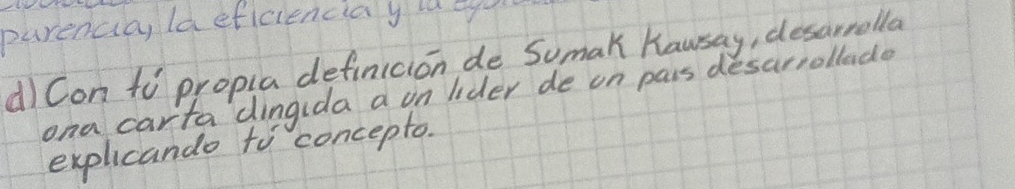 parencia, la eficiencia y la
d) Con tú propia definición de Sumak Kawsay, desarrolla
ona carta dirigida a un lider de un pais desarrollado
explicando tú concepto.